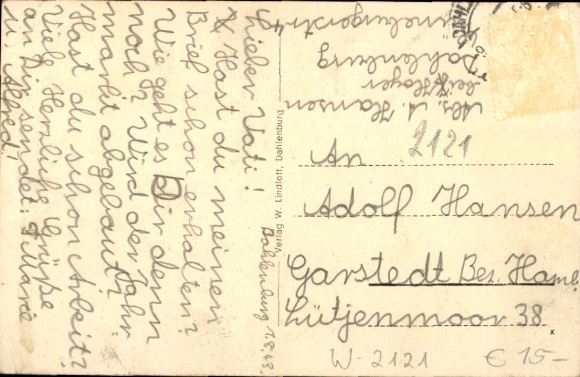 Lieber Vati!
Hast du meinen
Brief schon erhalten?
Wie geht es Dir denn
noch? Wird der Jahr-
markt abgebaut?
Hast du schon Arbeit?
Viele Herzliche Grüße
an Dir sendet: F Marē
u Alfred!
Dahlenburg
Verlag W. Lindloff, Dahlenburg
Abs. A. Hansen
Dahlenburg
2121
An
Adolf Hansen
Garstedt Bez. Hamb.
Lütjenmoor 38
x
W-2121 € 15-